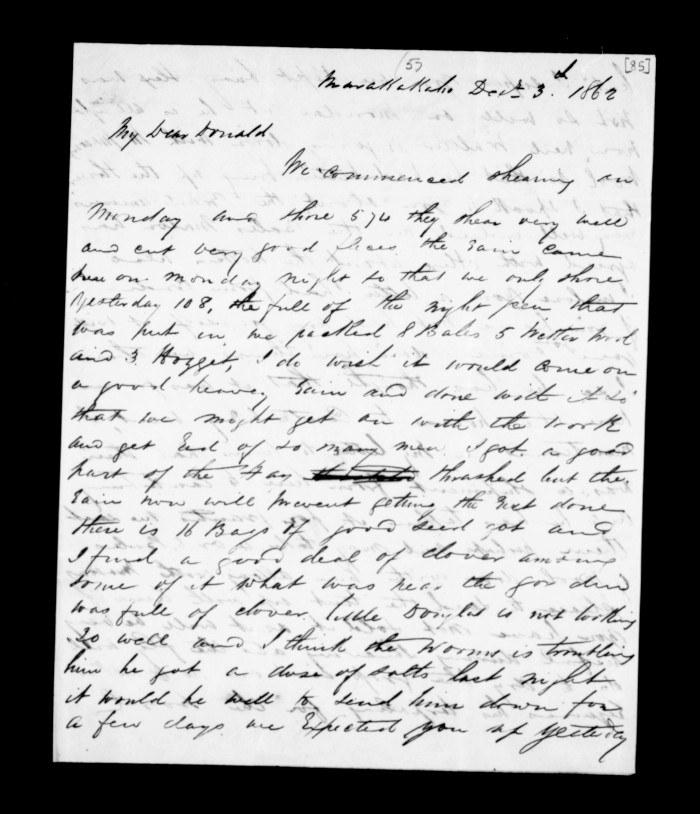 (5)
[85]
Maraekakaho Decr 3d. 1862
My Dear Donald
We commenced shearing on
Monday and shore 574 they shear very well
and cut very good flices the Rain came
here on Monday night so that we only shore
Yesterday 108, the full of the night pen that
was put in, we packed 8 Bales 5 Wether Wool
and 3 Hogget, I do wish it would come on
a good heavey Rain and done with it so
that we might get on with the work
and get Rid of so many men I got a good
part of the Hay thrashed but the
Rain now will prevent getting the Rest done
there is 16 Bags of good seed got and
I find a good deal of clover among
some of it what was near the garden
was full of clover. little Douglas is not looking
so well and I think the Worms is troubling
him he got a dose of salts last night
it would be well to send him down for
a few days we Expected you up Yesterday